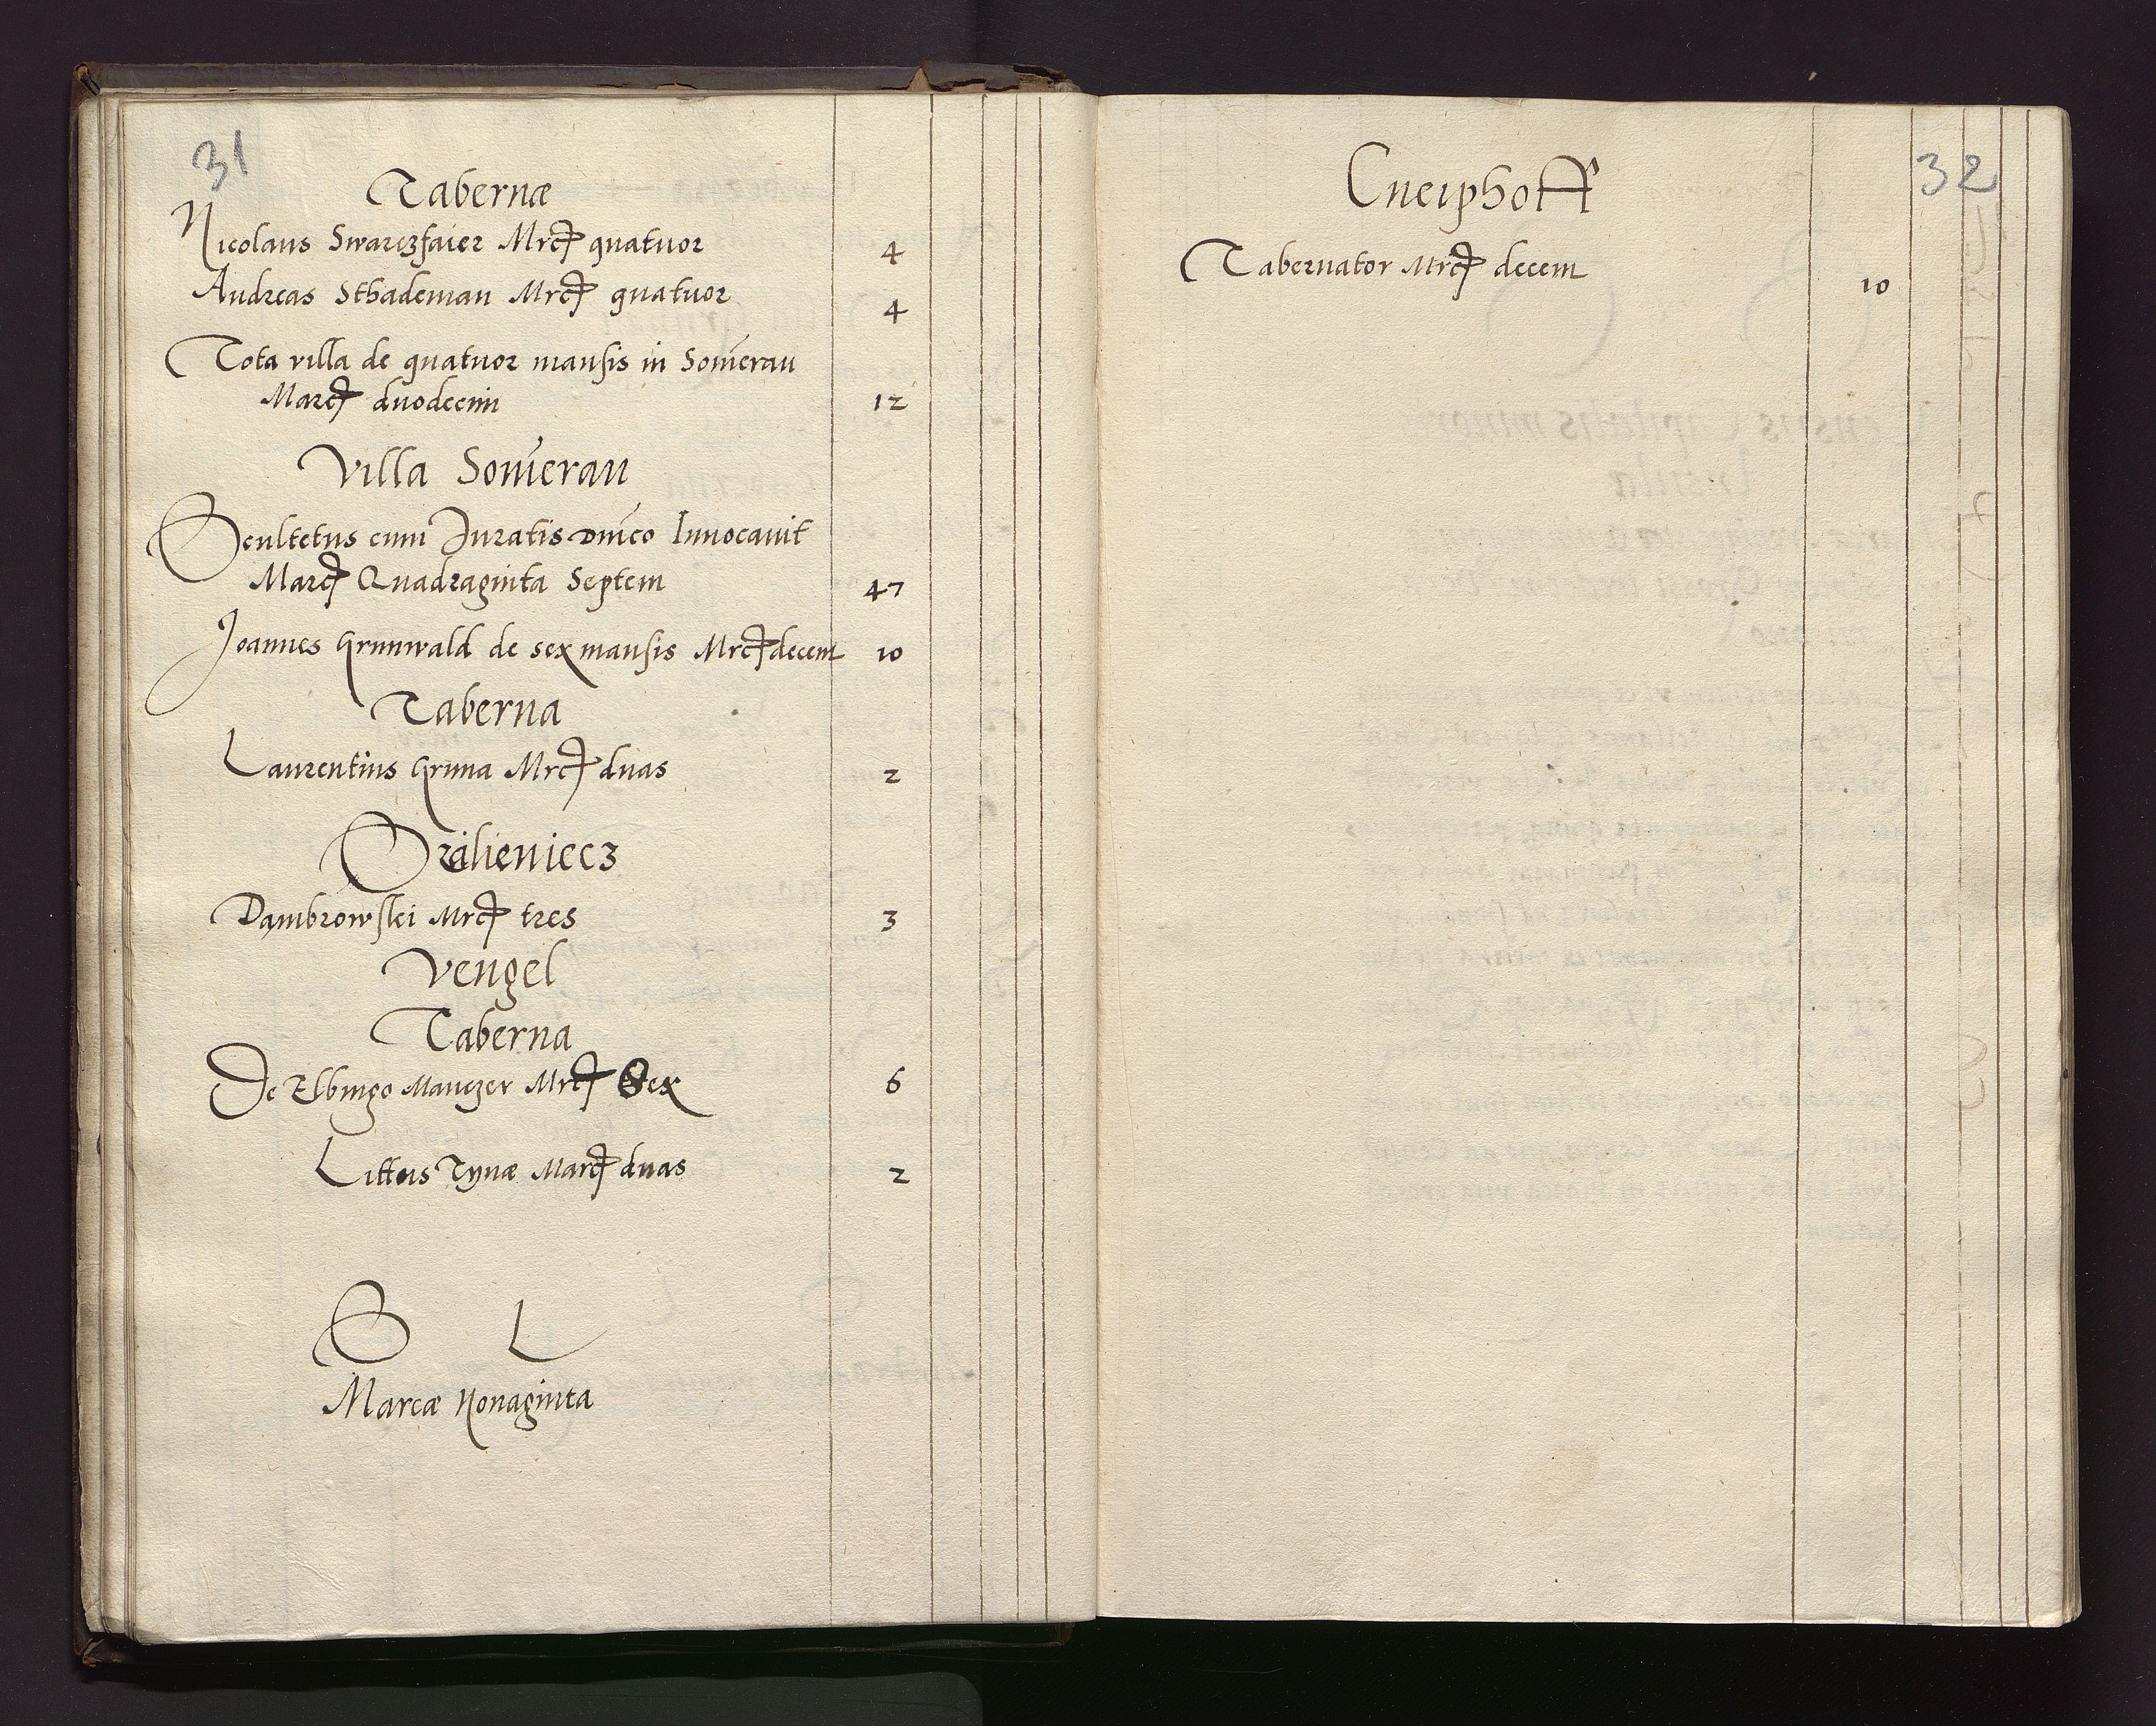 31
Tabernæ
Nicolaus Swarczfaier Mrcȩ quatuor 4
Andreas Sthademan Mrcȩ quatuor 4
Tota villa de quatuor mansis in Som̄erau
Marcȩ duodecim 12
Villa Som̄erau
Scultetus cum Juratis Dnīco Innocauit
Marcȩ Quadraginta Septem 47
Joannes Grunwald de sex mansis Mrcȩ decem 10
Taberna
Laurentius Gruna Mrcȩ duas 2
Dambrowski Mrcȩ tres 3
Vengel
Taberna
De Elbingo Manczer Mrcȩ Sex 6
Tynæ Marcȩ duas 2
S L
Marcæ Nonaginta
32
Cneiphoff
Tabernator Mrcȩ decem 10